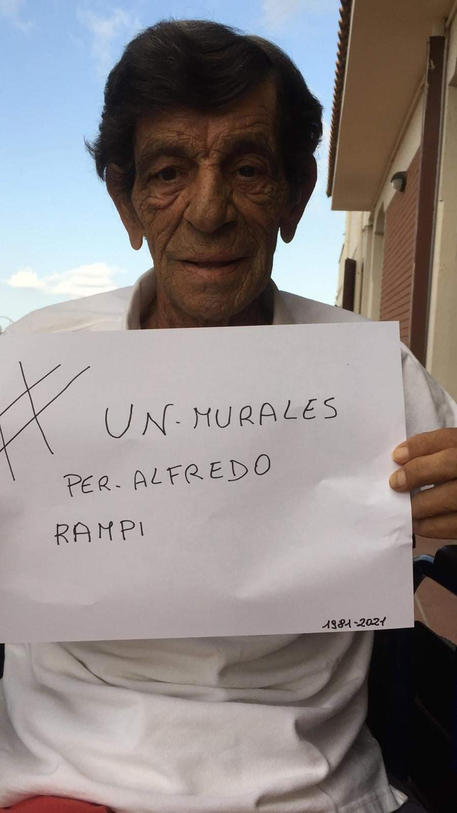 # UN-MURALES
PER-ALFREDO
RAMPI
1981-2021